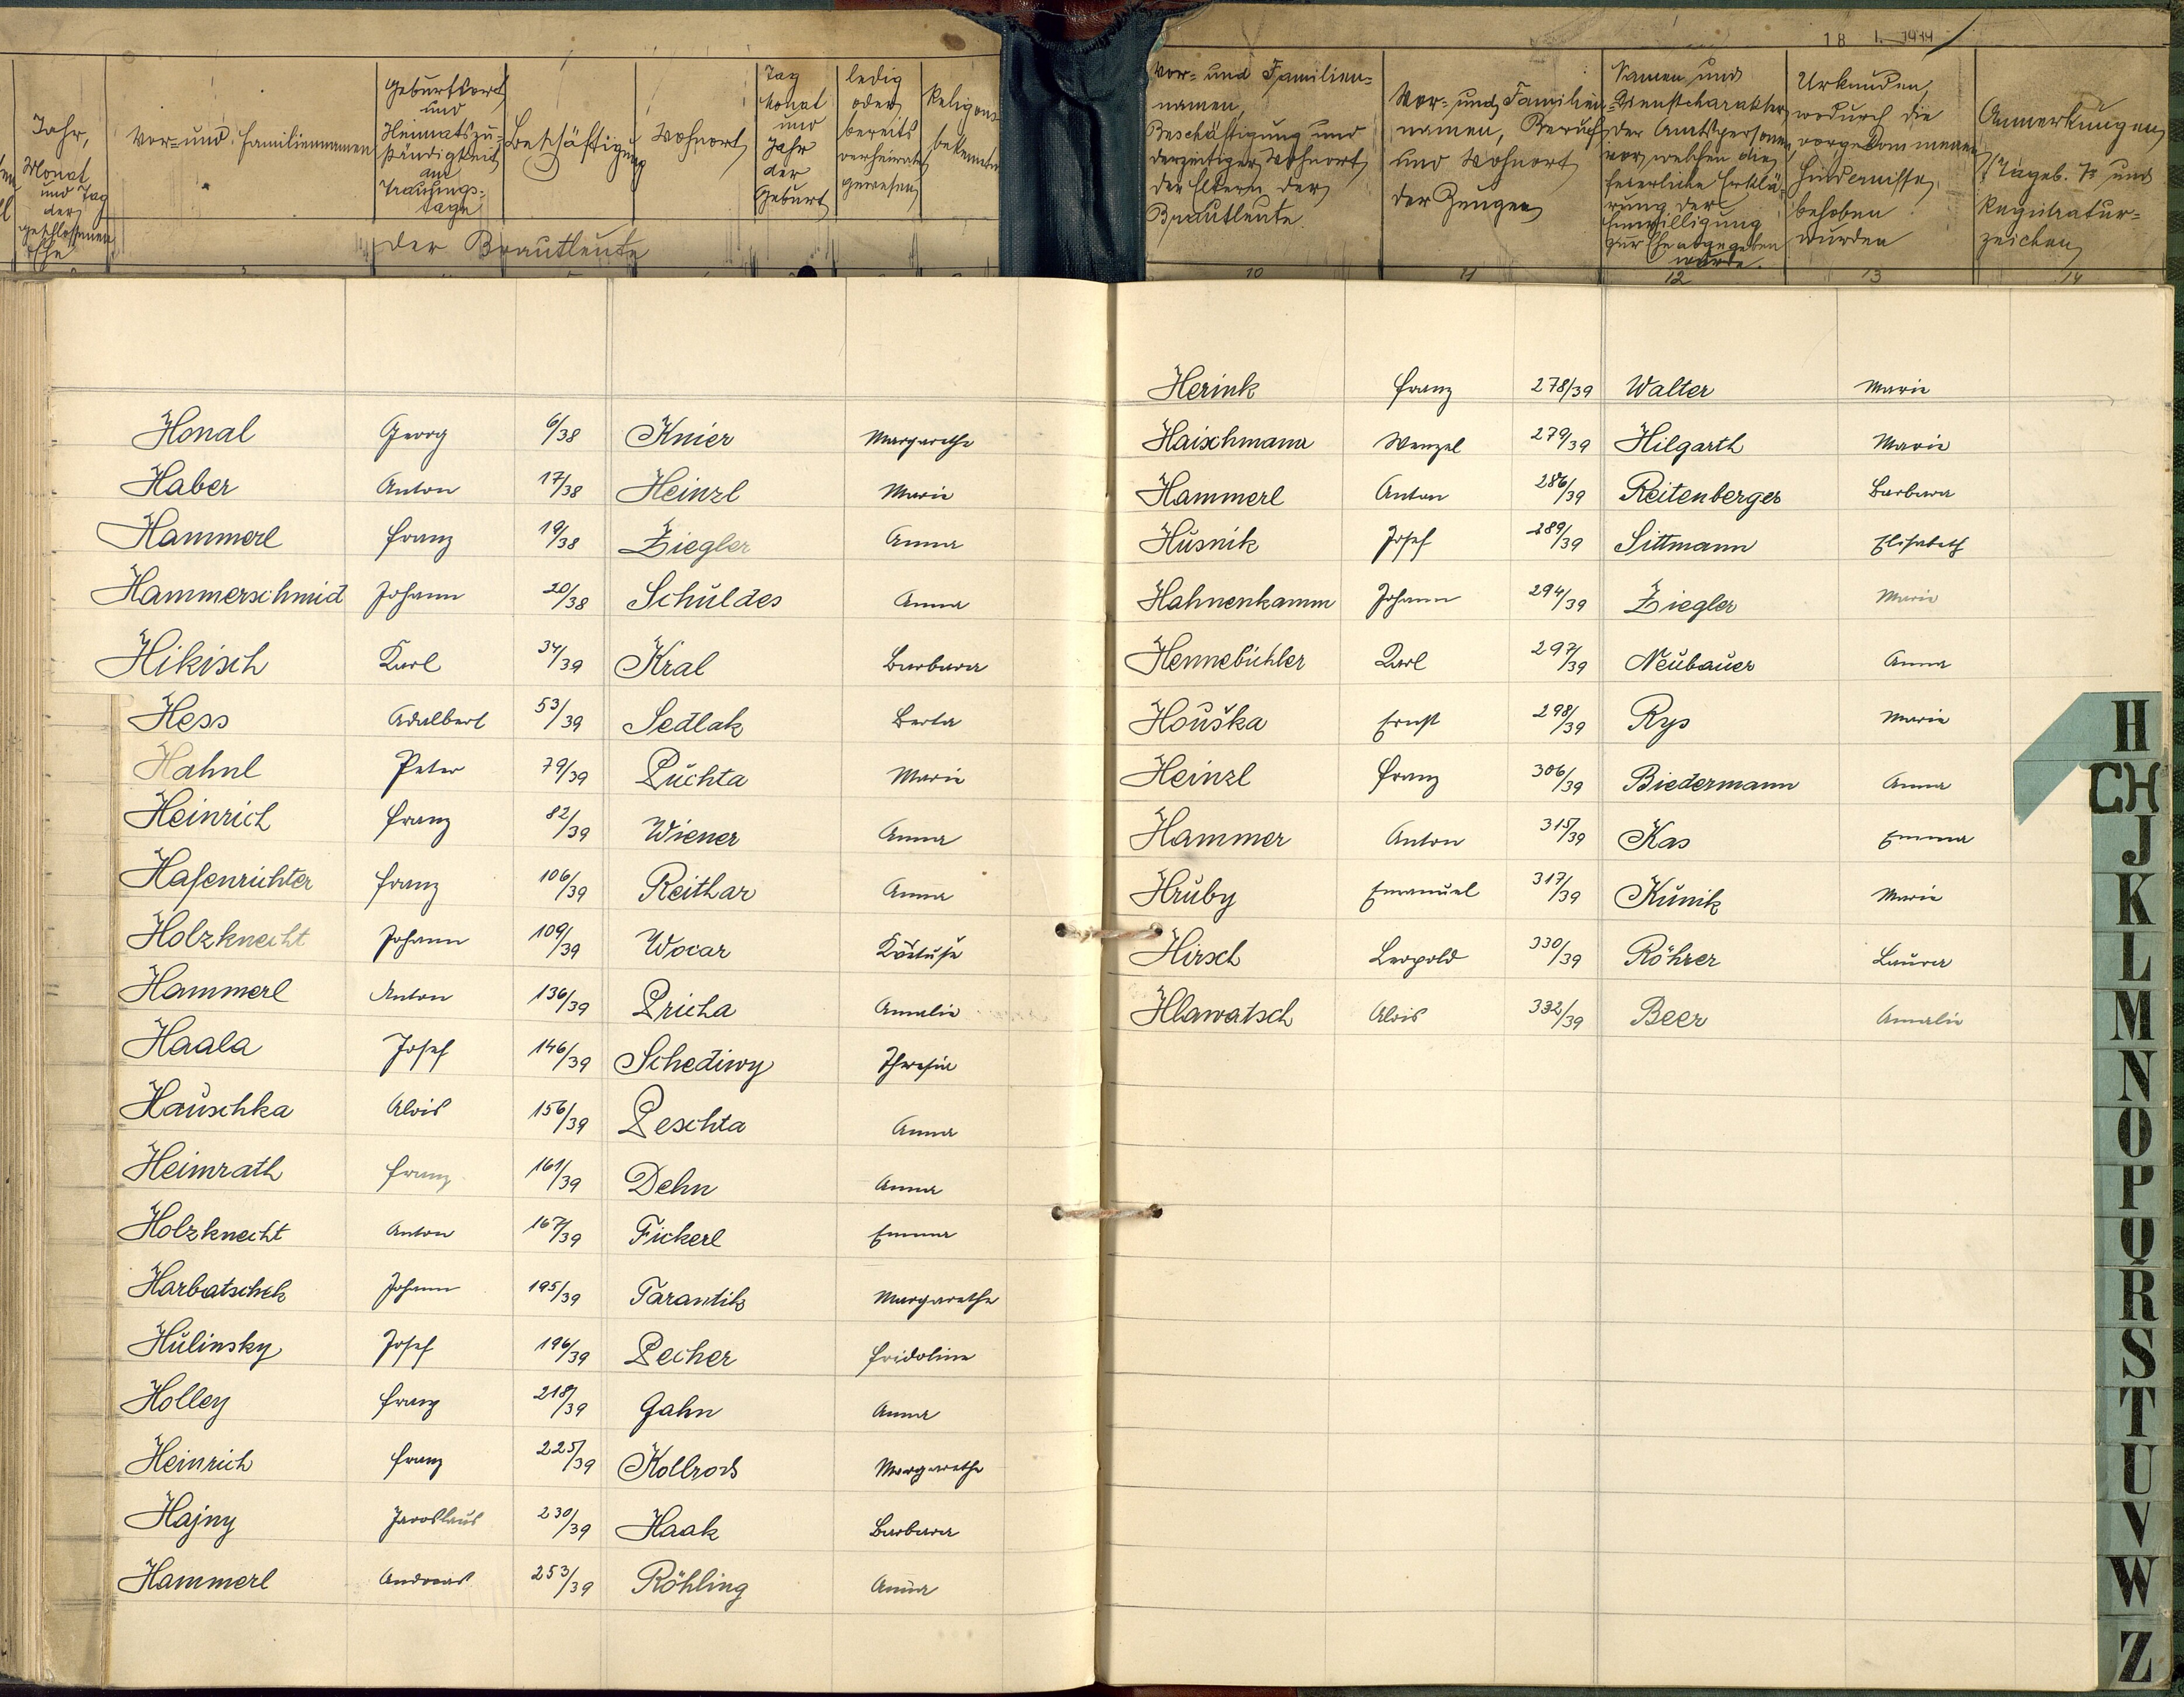 18 1. 1939
Jahr,
Monat
und Tag
der
geschlossenen
Ehe
Vor- und Familiennamen
Geburtsort
und
Heimatszu-
ständigkeit
am
Trauungs-
tage
Beschäftigung
Wohnort
Tag
Monat
und
Jahr
der
Geburt
ledig
oder
bereits
verheiratet
gewesen
Religions
bekenntn
der Brautleute
Vor- und Familien-
namen,
Beschäftigung und
derzeitiger Wohnort
der Eltern der
Brautleute
Vor- und Familien-
namen, Beruf
und Wohnort
der Zeugen
Namen und
Dienstcharakter
der Amtspersonen
vor welchen die
feierliche Erklä-
rung der
Einwilligung
zur Ehe abgegeben
wurde.
Urkunden,
wodurch die
vorgekommenen
Hindernisse
behoben
wurden
Anmerkungen
Tageb. Nr und
Registratur-
zeichen
10 11 12 13 14
Honal Georg 6/38 Knier Margarethe
Haber Anton 17/38 Heinzl Marie
Hammerl Franz 19/38 Ziegler Anna
Hammerschmid Johann 20/38 Schuldes Anna
Hikisch Karl 34/39 Kral Barbara
Hess Adalbert 53/39 Sedlak Berta
Hahnl Peter 79/39 Puchta Marie
Heinrich Franz 82/39 Wiener Anna
Hafenrichter Franz 106/39 Reithar Anna
Holzknecht Johann 109/39 Wocar
Hammerl Anton 136/39 Pricha Amalie
Haala Josef 146/39 Schediwy Theresia
Hauschka Alois 156/39 Peschta Anna
Heimrath Franz 161/39 Dehn Anna
Holzknecht Anton 167/39 Fickerl Emma
Harbatschek Johann 195/39 Tarantik Margarethe
Hulinsky Josef 196/39 Pecher Fridoline
Holley Franz 218/39 Gahn Anna
Heinrich Franz 225/39 Kollros Margarethe
Hajny Jaroslaus 230/39 Haak Barbara
Hammerl Andreas 253/39 Röhling Anna
Herink Franz 278/39 Walter Marie
Haischmann Wenzel 279/39 Hilgarth Marie
Hammerl Anton 286/39 Reitenberger Barbara
Husnik Josef 289/39 Sittmann Elisabeth
Hahnenkamm Johann 294/39 Ziegler Marie
Hennebichler Karl 297/39 Neubauer Anna
Houška Ernst 298/39 Rys Marie
Heinzl Franz 306/39 Biedermann Anna
Hammer Anton 315/39 Kas Emma
Hruby Emanuel 317/39 Kunik Marie
Hirsch Leopold 330/39 Röhrer Laura
Hlawatsch Alois 332/39 Beer Amalie
H
CH
J
K
L
M
N
O
P
Q
R
S
T
U
V
W
Z